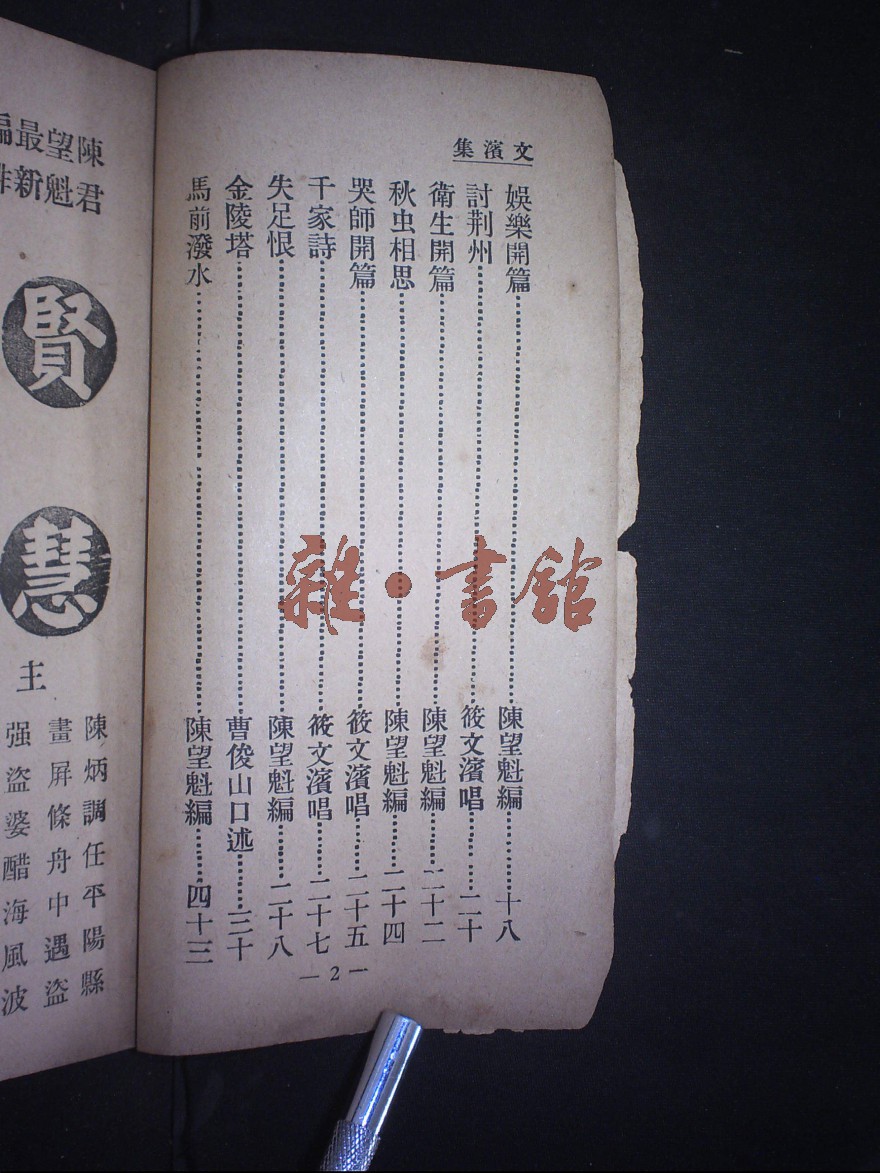 文濱集
娛樂開篇……陳望魁編……十八
討荆州……筱文濱唱……二十
衛生開篇……陳望魁編……二十二
秋虫相思……陳望魁編……二十四
哭師開篇……筱文濱唱……二十五
千家詩……筱文濱唱……二十七
失足恨……陳望魁編……二十八
金陵塔……曹俊山口述……三十
馬前潑水……陳望魁編……四十三
—2—
陳君
望魁
最新
賢
慧
主
陳炳調任平陽縣
畫屏條舟中遇盜
强盜婆醋海風波
雜·書館